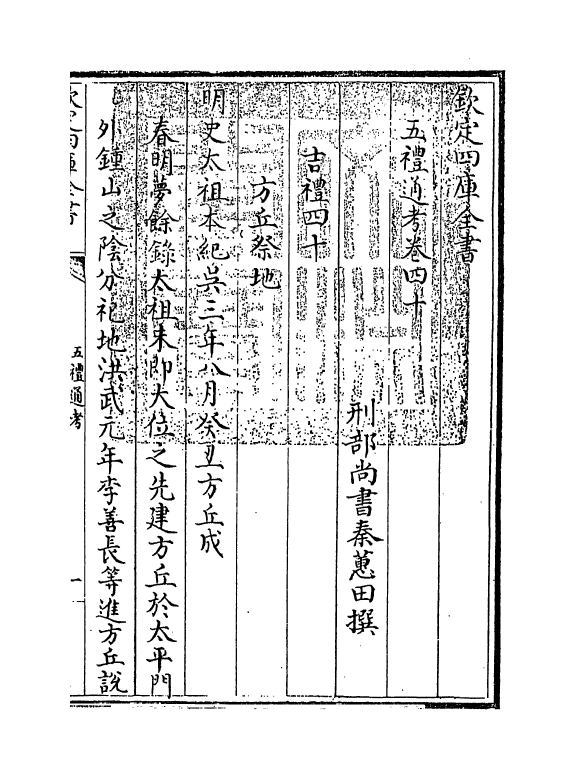 欽定四庫全書
五禮通考卷四十
刑部尚書秦蕙田撰
吉禮四十
方丘祭地
明史太祖本紀吳三年八月癸丑方丘成
春明夢餘錄太祖未即大位之先建方丘於太平門
外鍾山之陰分祀地洪武元年李善長等進方丘說
欽定四庫全書
五禮通考
一